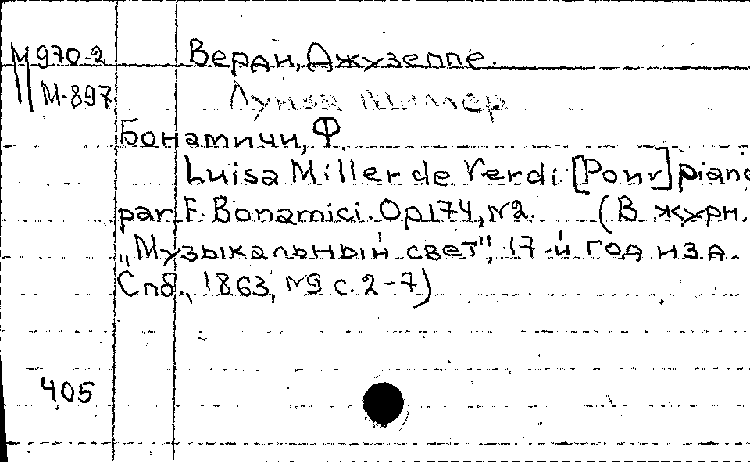 М 970-2 Верди, Джузеппе.
М-897 Луиза Миллер
Бонатичи, Ф.
Luisa Miller de Verdi. [Pour] piano
par F. Bonamici. Op 174, №2. (В журн.
„Музыкальный свет", 17-й год изд.
Спб., 1863, №9 с. 2-7)
405